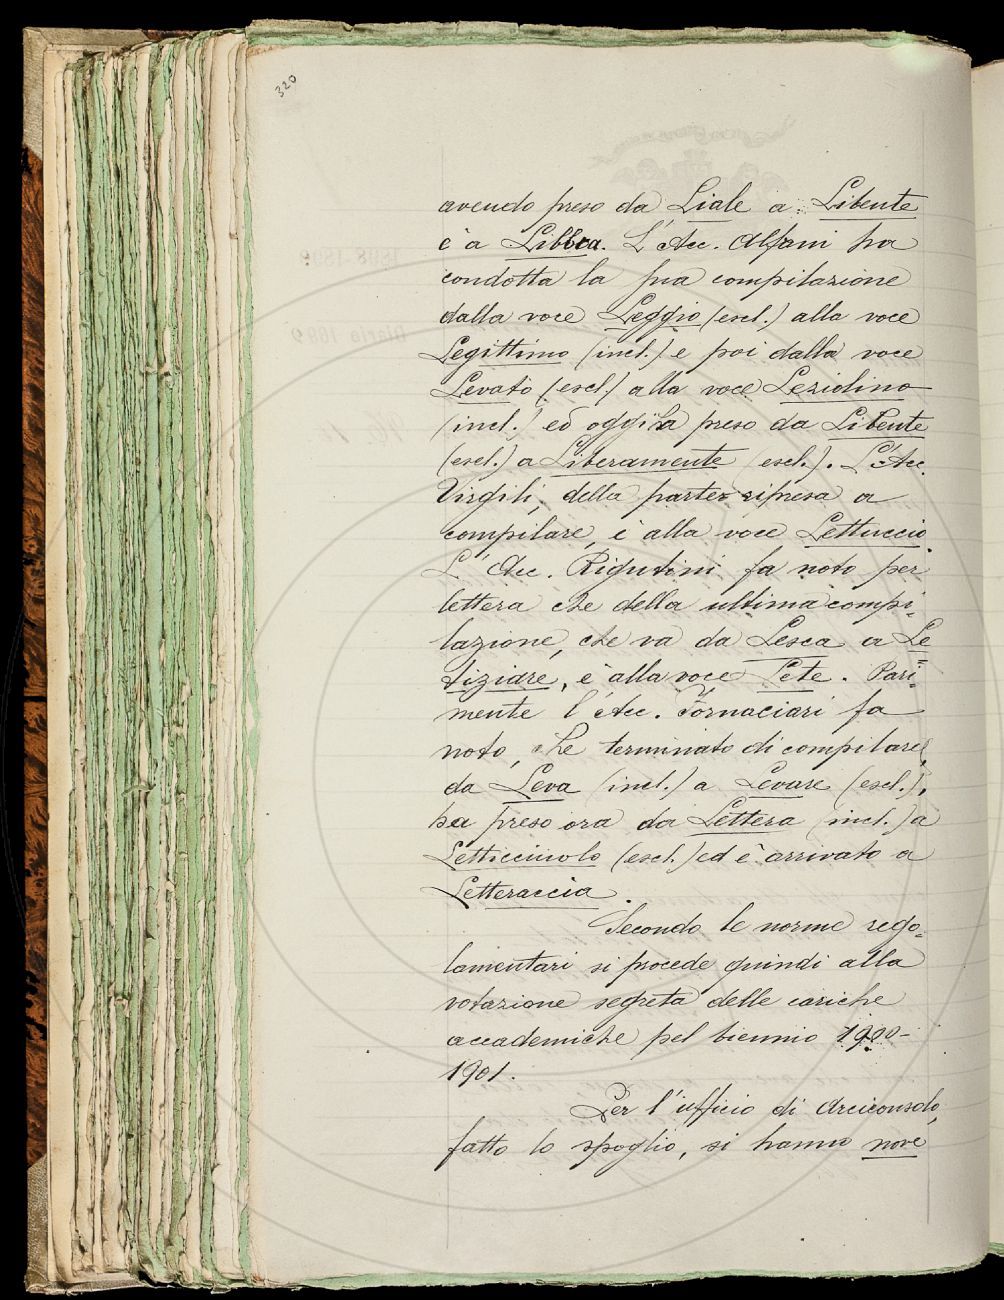 320
avendo preso da Liale a Libente
è a Libbra. L'Acc. Alfani ha
condotta la sua compilazione
dalla voce Leggio (escl.) alla voce
Legittimo (incl.) e poi dalla voce
Levato (escl.) alla voce Leziolino
(incl.) ed oggi ha preso da Libente
(escl.) a Liberamente (escl.). L'Acc.
Virgili, della parte ripresa a
compilare, è alla voce Lettuccio
L'Acc. Rigutini fa noto per
lettera che della ultima compi=
lazione, che va da Lesca a Le=
tiziare, è alla voce Lete. Pari=
mente l'Acc. Fornaciari fa
noto, che terminato di compilare
da Leva (incl.) a Levare (escl.),
ha preso ora da Lettera (incl.) a
Letticciuolo (escl.) ed è arrivato a
Letteraccia.
Secondo le norme rego=
lamentari si procede quindi alla
votazione segreta delle cariche
accademiche pel biennio 1900-
1901.
Per l'ufficio di Arciconsolo,
fatto lo spoglio, si hanno nove